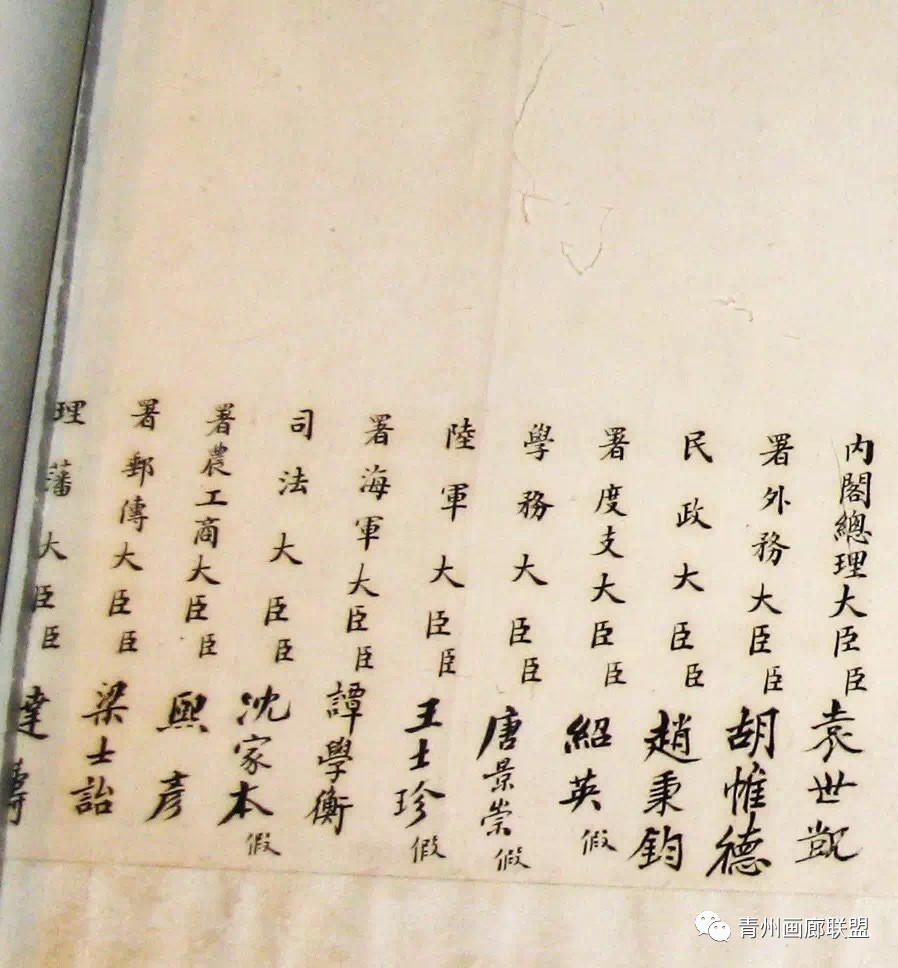 内閣總理大臣臣袁世凱
署外務大臣臣胡惟德
民政大臣臣趙秉鈞
署度支大臣臣紹英假
學務大臣臣唐景崇假
陸軍大臣臣王士珍假
署海軍大臣臣譚學衡
司法大臣臣沈家本假
署農工商大臣臣熙彥
署郵傳大臣臣梁士詒
理藩大臣臣達壽
青州画廊联盟